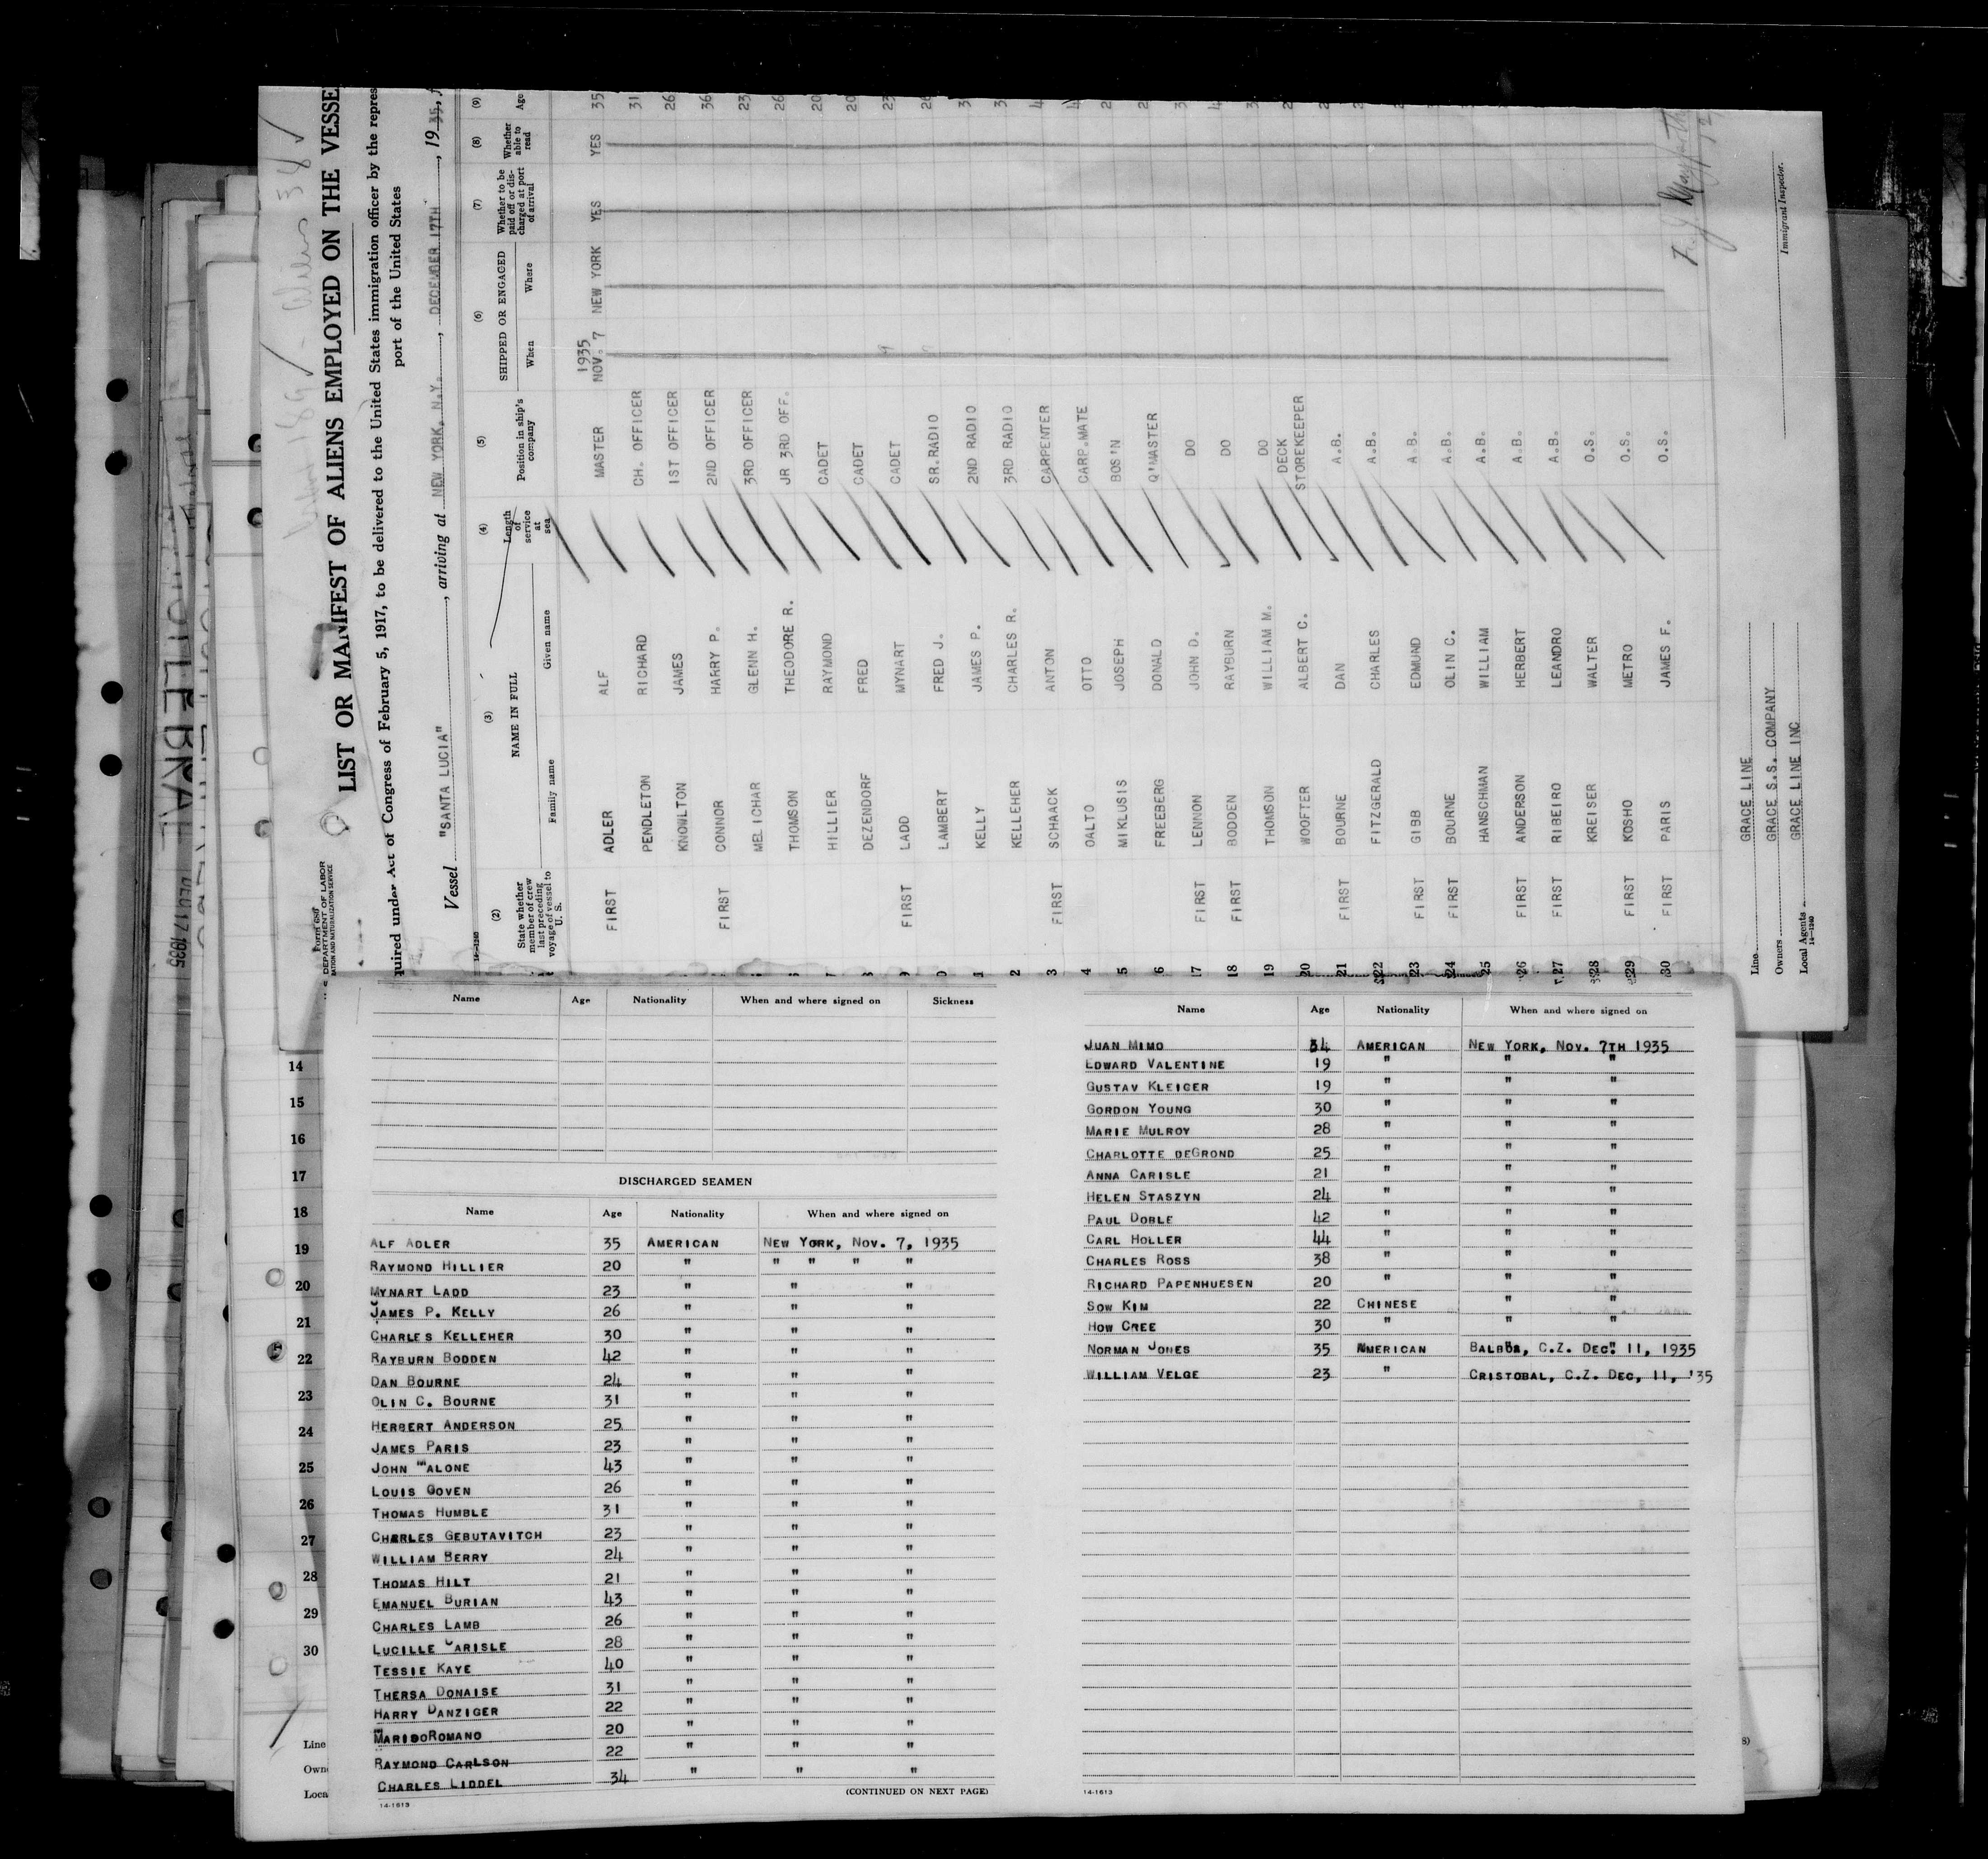 Form 680
DEPARTMENT OF LABOR
LIST OR MANIFEST OF ALIENS EMPLOYED ON THE VESSE
quired under Act of Congress of February 5, 1917, to be delivered to the United States immigration officer by the repres
port of the United States
Vessel "SANTA LUCIA", arriving at NEW YORK, N.Y., DECEMBER 17TH, 1935, f
(2) (3) (4) (5) (6) (7) (8) (9)
State whether member of crew last preceding voyage of vessel to U. S.
NAME IN FULL
Family name Given name
Length of service at sea
Position in ship's company
SHIPPED OR ENGAGED
When Where
Whether to be paid off or discharged at port of arrival
Whether able to read
Age
FIRST ADLER ALF MASTER 1935 NOV. 7 NEW YORK YES YES 35
PENDLETON RICHARD CH. OFFICER 31
KNOWLTON JAMES 1ST OFFICER 26
FIRST CONNOR HARRY P. 2ND OFFICER 36
MELICHAR GLENN H. 3RD OFFICER 23
THOMSON THEODORE R. JR 3RD OFF. 26
HILLIER RAYMOND CADET 20
DEZENDORF FRED CADET 20
FIRST LADD MYNART CADET 23
LAMBERT FRED J. SR. RADIO 26
KELLY JAMES P. 2ND RADIO
KELLEHER CHARLES R. 3RD RADIO
FIRST SCHAACK ANTON CARPENTER
OALTO OTTO CARP. MATE
MIKLUSIS JOSEPH BOS'N
FREEBERG DONALD Q'MASTER
17 FIRST LENNON JOHN D. DO
18 FIRST BODDEN RAYBURN DO
19 THOMSON WILLIAM M. DO
20 WOOFTER ALBERT C. DECK STOREKEEPER
21 FIRST BOURNE DAN A.B.
22 FITZGERALD CHARLES A.B.
23 FIRST GIBB EDMUND A.B.
24 FIRST BOURNE OLIN C. A.B.
25 HANSCHMAN WILLIAM A.B.
26 FIRST ANDERSON HERBERT A.B.
27 FIRST RIBEIRO LEANDRO A.B.
28 KREISER WALTER O.S.
29 FIRST KOSHO METRO O.S.
30 FIRST PARIS JAMES F. O.S.
Line GRACE LINE
Owners GRACE S.S. COMPANY
Local Agents GRACE LINE INC
14-1240
Immigrant Inspector.
DEC 17 1935
14
15
16
17
18
19
20
21
22
23
24
25
26
27
28
29
30
Line
Own
Loca
Name Age Nationality When and where signed on Sickness
DISCHARGED SEAMEN
Name Age Nationality When and where signed on
ALF ADLER 35 AMERICAN NEW YORK, NOV. 7, 1935
RAYMOND HILLIER 20 " " " " "
MYNART LADD 23 " " "
JAMES P. KELLY 26 " " "
CHARLES KELLEHER 30 " " "
RAYBURN BODDEN 42 " " "
DAN BOURNE 24 " " "
OLIN C. BOURNE 31 " " "
HERBERT ANDERSON 25 " " "
JAMES PARIS 23 " " "
JOHN MALONE 43 " " "
LOUIS GOVEN 26 " " "
THOMAS HUMBLE 31 " " "
CHARLES GEBUTAVITCH 23 " " "
WILLIAM BERRY 24 " " "
THOMAS HILT 21 " " "
EMANUEL BURIAN 43 " " "
CHARLES LAMB 26 " " "
LUCILLE CARISLE 28 " " "
TESSIE KAYE 40 " " "
THERSA DONAISE 31 " " "
HARRY DANZIGER 22 " " "
MARIDOROMANO 20 " " "
RAYMOND CARLSON 22 " " "
CHARLES LIDDEL 34 " " "
(CONTINUED ON NEXT PAGE)
14-1613
Name Age Nationality When and where signed on
JUAN MIMO 34 AMERICAN NEW YORK, NOV. 7TH 1935
EDWARD VALENTINE 19 " " "
GUSTAV KLEIGER 19 " " "
GORDON YOUNG 30 " " "
MARIE MULROY 28 " " "
CHARLOTTE DEGROND 25 " " "
ANNA CARISLE 21 " " "
HELEN STASZYN 24 " " "
PAUL DOBLE 42 " " "
CARL HOLLER 44 " " "
CHARLES ROSS 38 " " "
RICHARD PAPENHUESEN 20 " " "
SOW KIM 22 CHINESE " "
HOW CREE 30 " " "
NORMAN JONES 35 AMERICAN BALBOA, C.Z. DEC. 11, 1935
WILLIAM VELGE 23 " CRISTOBAL, C.Z. DEC, 11, '35
14-1613